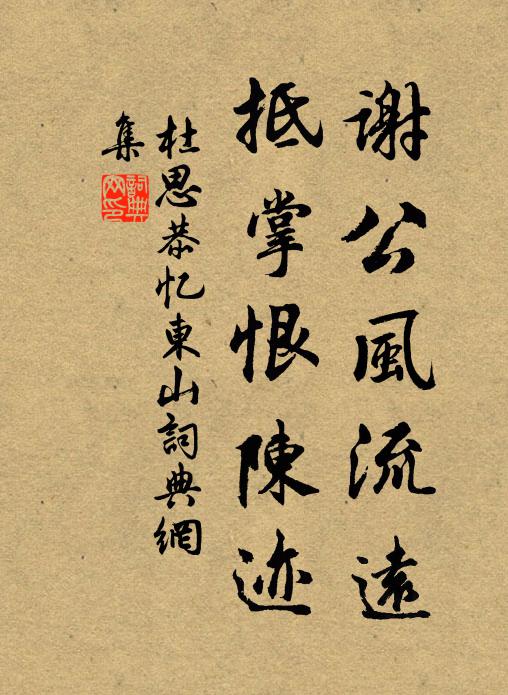 謝公風流遠
抵掌恨陳迹
杜思恭忆東山詞典網
集
詞典網印